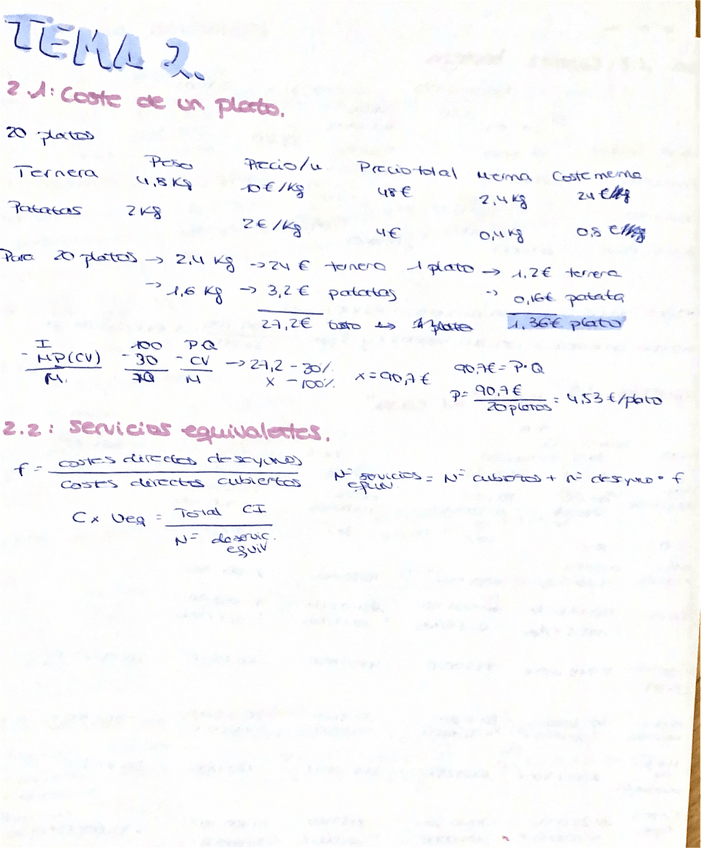 TEMA 2.
2.1: Coste de un plato.
20 platos
Peso Precio/u Precio total Merma Coste merma
Ternera 4,8 Kg 10€/Kg 48€ 2,4 Kg 24€
Patatas 2 Kg 2€/Kg 4€ 0,4 Kg 0,8€
Para 20 platos → 2,4 Kg → 24€ ternera 1 plato → 1,2€ ternera
→ 1,6 Kg → 3,2€ patatas → 0,16€ patata
27,2€ ↔ 1 plato 1,36€ plato
I 100 PQ
- MP(CV) - 30 - CV → 27,2 - 30% x = 90,7€ 90,7€ = P·Q
M. 70 M x - 100% P = 90,7€ / 20 platos = 4,53€/plato
2.2: Servicios equivalentes.
f = costes directos desayunos / costes directos cubiertos Nº servicios equiv = Nº cubiertos + nº desayuno · f
C x Ueq = Total CI / Nº deservic. equiv